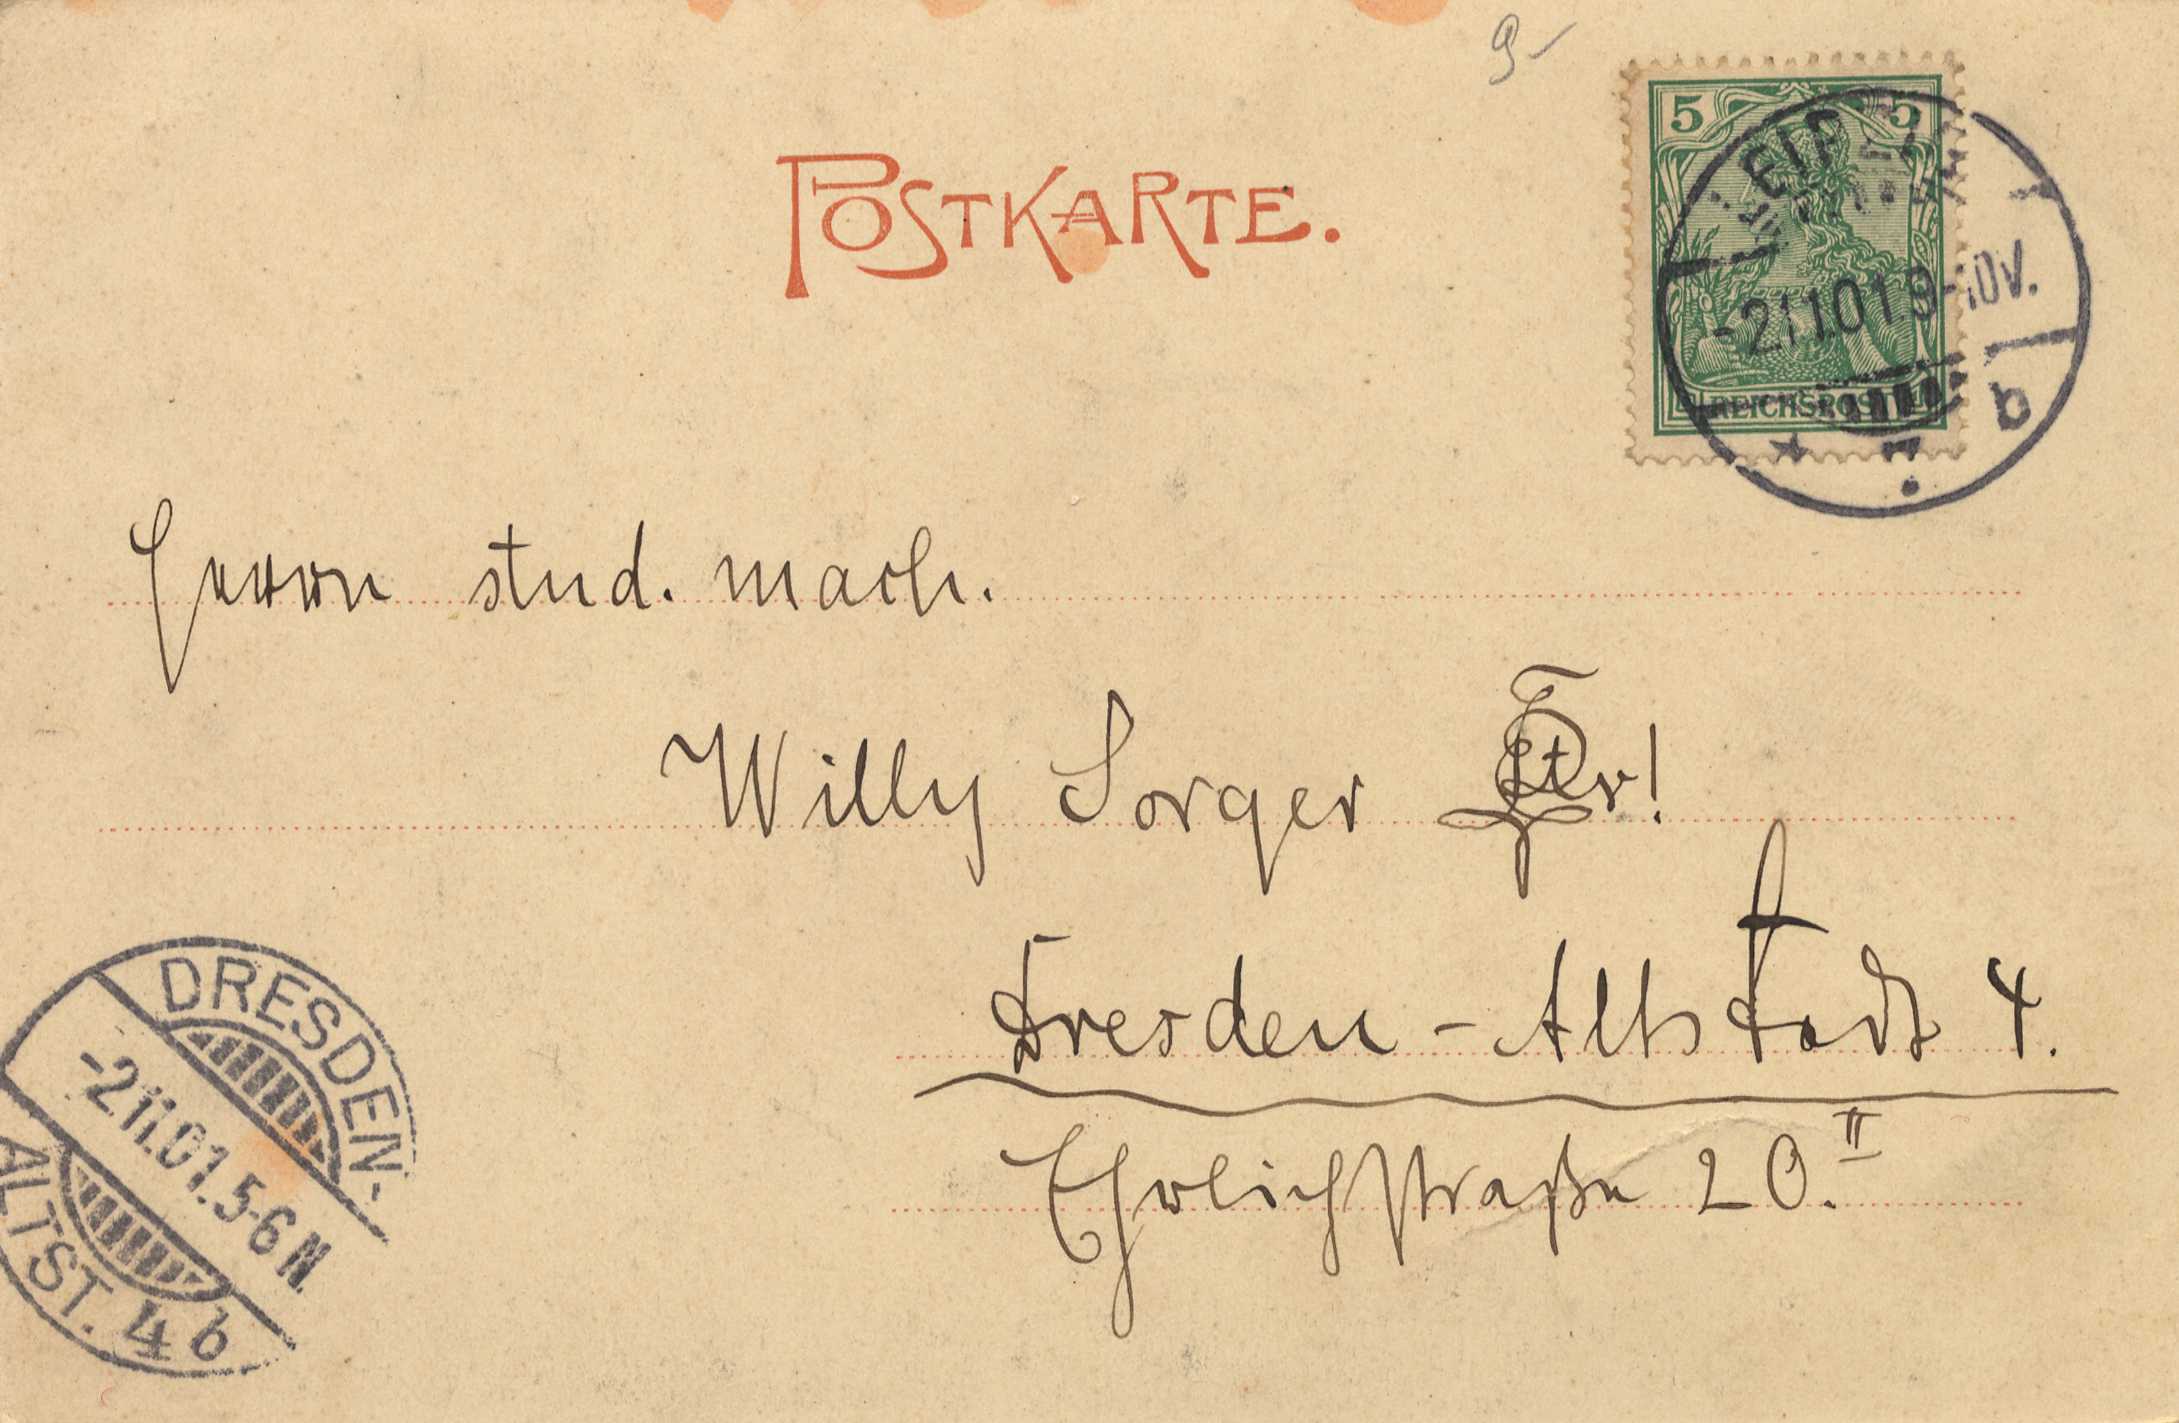 9-
POSTKARTE.
5 5
REICHSPOST
LEIPZIG
-2.11.01.9-10V.
* 7. b
Herrn stud. mach.
Willy Sorger
Dresden-Altstadt 4.
Ehrlichstraße 20.II
DRESDEN-
-2.11.01.5-6 N.
ALTST. 4 b